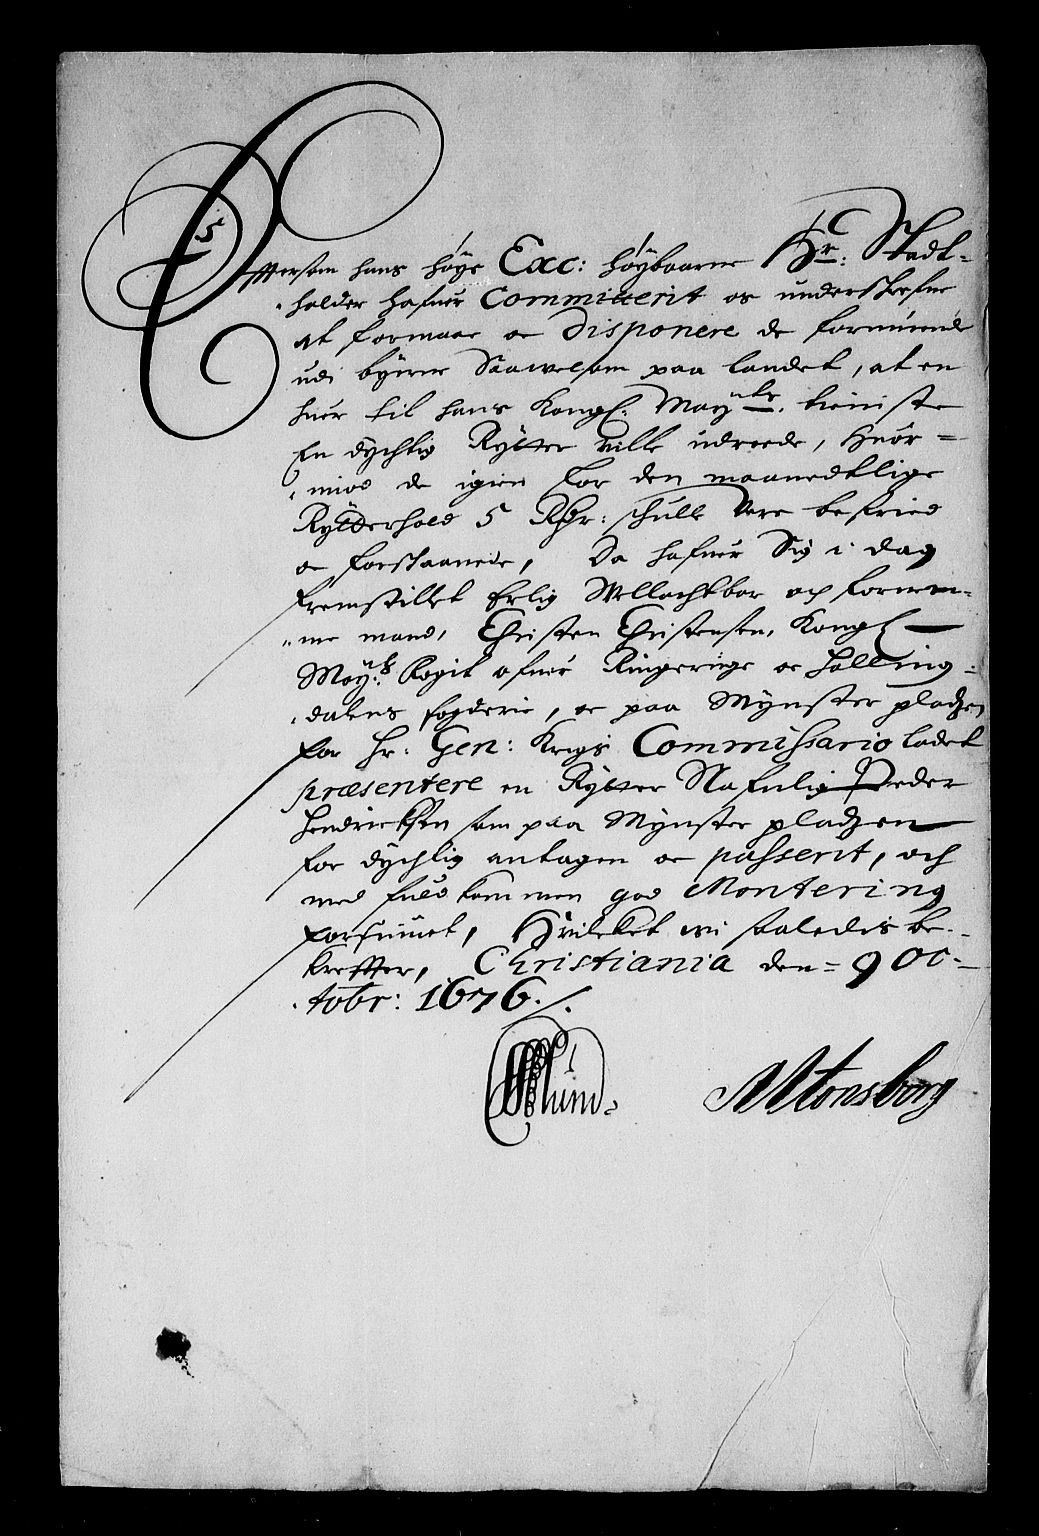 5
Efftersom hans höye Exc: höyboarne Hr: Stadt-
holder hafuer Committerit os underschrefne
at formaae oc disponere de formuende
udi byerne Saavelsom paa landet, at en
huer til hans Kongl: Mayts. tieniste
En dychtig Rytter ville udreede, huor-
imod de igien for den maanedtlige
Rytterhold 5 Rdr: schulle være befried
oc forskaanede, Da hafuer Sig i dag
fremstillet Erlig Wellachtbar och fornem-
me mand, Christen Christensen, Kongl
Mayts. Fogit ofuer Ringerige oc Halling-
dalens fogderie, oc paa Mynster pladzen
for Hr: Gen: Krigs Commissario ladet
præsentere en Rytter Nafnlig Peder
Hendrichsen som paa Mynster pladzen
for dychtig antagen oc passerit, och
med fuldkommen god Montering
forsiunet, Hvilcket wi saaledis be-
kreffter, Christiania den 9 Oc-
tobr: 1676 ./.
Lund
Tonsborg